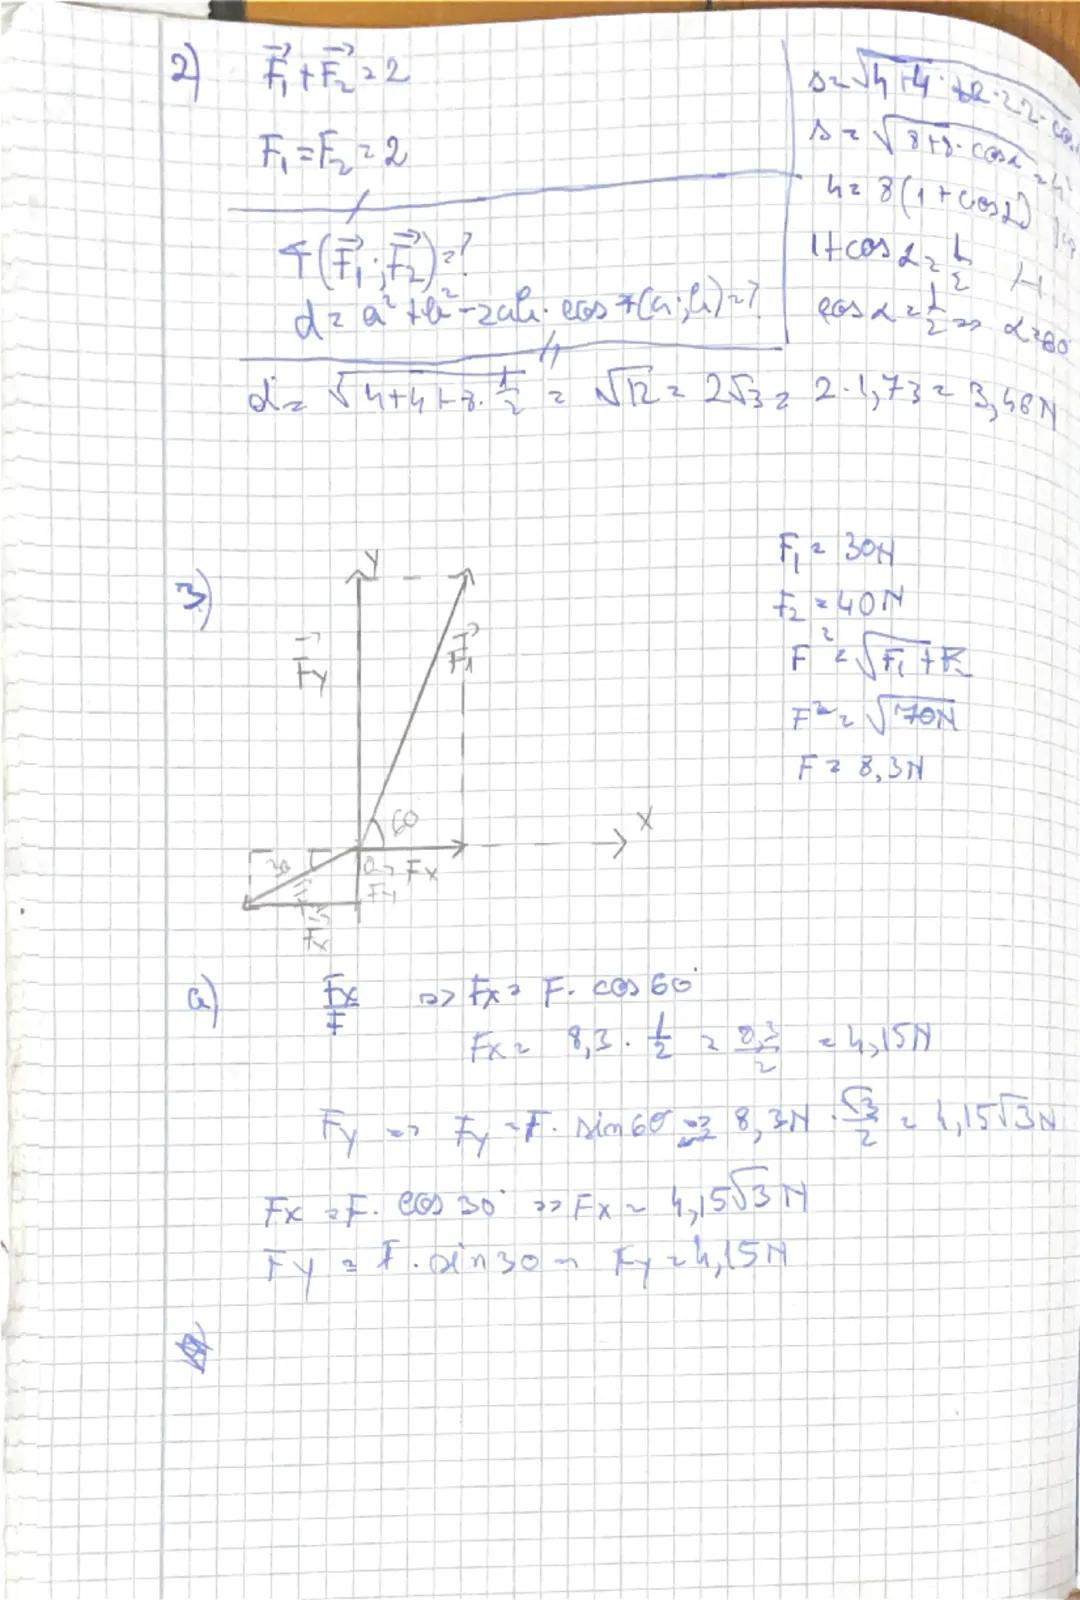 2) F₁ + F₂ = 2
F₁ = F₂ = 2
∢(F₁; F₂) = ?
d = a² + b² - 2ab · cos ∢(a; b) = ?
d = √4+4+8·1/2 = √12 = 2√3 = 2·1,73 = 3,46N
s = √4+4+2·2·2·cos
s = √8+8·cosα = 4
4 = 8(1+cosα)
1+cosα = 1/2
cosα = 1/2 => α = 60
3)
Y
Fy
F₁
60
X
30
0
Fx
Fy
Fx
F₁ = 30N
F₂ = 40N
F² = √F₁+F₂
F² = √70N
F = 8,3N
a) Fx/F => Fx = F · cos 60°
Fx = 8,3 · 1/2 = 8,3/2 = 4,15N
Fy => Fy = F · sin 60 => 8,3N · √3/2 = 4,15√3N
Fx = F · cos 30° => Fx = 4,15√3 N
Fy = F · sin 30 = Fy = 4,15N